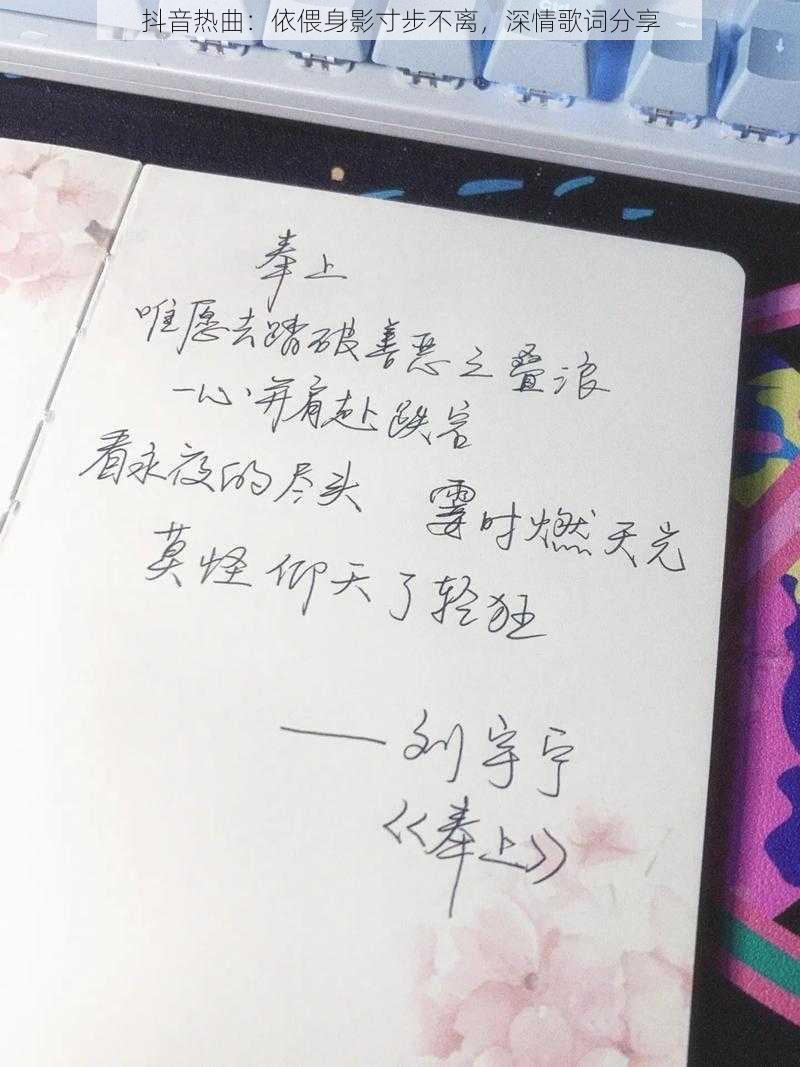 抖音热曲：依偎身影寸步不离，深情歌词分享
奉上
唯愿去踏破善恶之叠浪
一心并肩赴跌宕
看永夜的尽头 霎时燃天光
莫怪仰天了轻狂
——刘宇宁
《奉上》